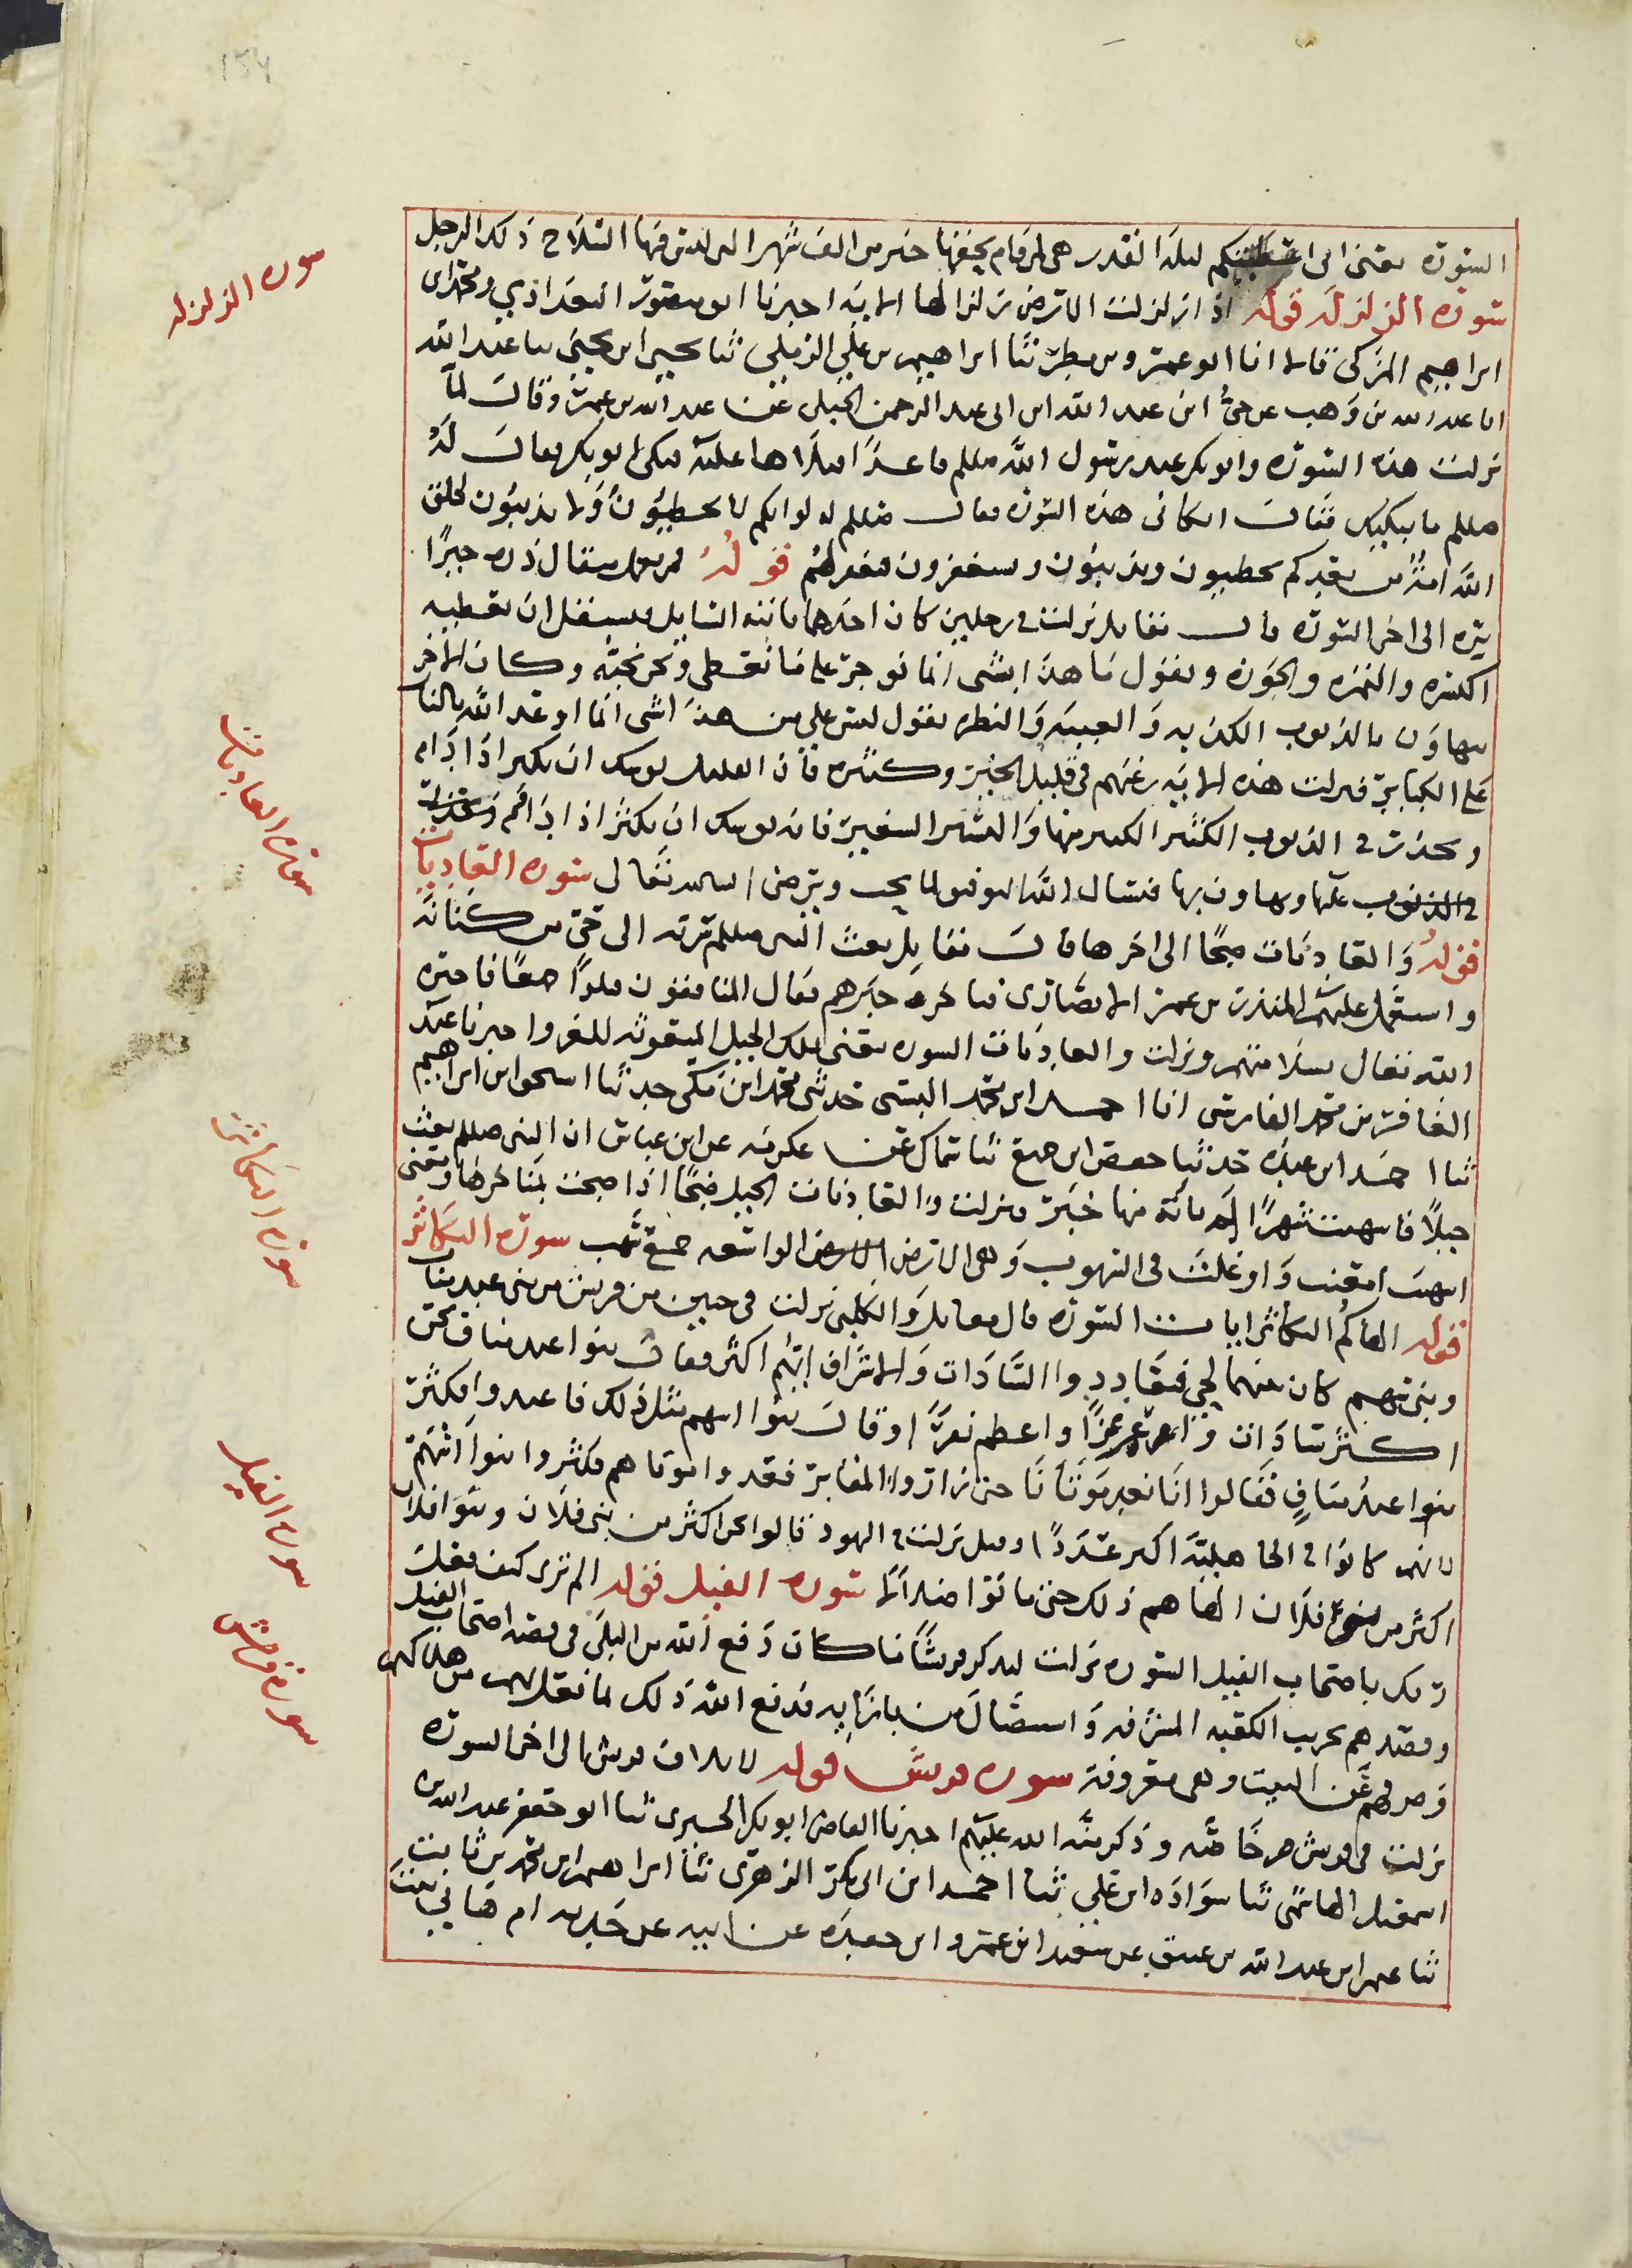 ١٥٤
السورة يعني اني اعطيتكم ليلة القدر هي لمن قام بحقها خير من الف شهر التي لبس فيها السلاح ذلك الرجل
سورة الزلزلة قوله اذا زلزلت الارض زلزالها الاية اخبرنا ابو منصور البغدادي ومحمد ابن
ابراهيم المزكي قالا انا ابو عمرو بن مطر ثنا ابراهيم بن علي الذهلي ثنا يحيى ابن يحيى
انا عبد الله بن وهب عن حي ابن عبد الله ابن ابي عبد الرحمن الحبلي عن عبد الله بن عمر وقال لما
نزلت هذه السورة وابو بكر عند رسول الله صللم قاعدا فبكى ابو بكر فقال له
صللم ما يبكيك فقال ابكاني هذه السورة فقال صللم لو لو انكم لا تخطيون ولا تذنبون لخلق
الله امة من بعدكم يخطيون ويذنبون ويستغفرون فيغفر لهم قوله فمن يعمل مثقال ذرة خيرا
يره الى اخر السورة قال مقاتل نزلت في رجلين كان احدهما ياتيه السايل فيستقل ان يعطيه
الكسرة والتمرة والجوزة ويقول ما هذا بشي انما نوجر على ما نعطي ونحن نحبه وكان الاخر
يتهاون بالذنوب الكذبة والغيبة والنظرة يقول ليس علي من هذا شي انما اوعد الله بالنار
على الكبائر فنزلت هذه الاية يرغبهم في قليل الخير وكثيره فان القليل يوشك ان يكبر اذا دام
ويحذرت في الذنوب الكثير الكبير منها واليسير الصغير فانه يوشك ان يكثر اذا ادام
في الذنوب عليها وتهاون بها فنسال الله التوفيق لما يحب ويرضى سورة العاديات
قوله والعاديات ضبحا الى اخرها قال مقاتل بعث النبي صللم سرية الى حي من كنانة
واستعمل عليهم المنذر بن عمر الانصاري فتاخر خبرهم فقال المنافقون قتلوا جميعا فاخبره
الله تعالى بسلامتهم ونزلت والعاديات السورة يعني تلك الخيل المبعوثة للغزو اخبرنا عبد
الغافر بن محمد الفارسي انا احمد ابن محمد البستي حدثني محمد ابن مكي حدثنا اسحق ابن ابراهيم
ثنا احمد ابن عبده حدثنا حفص ابن جميع ثنا سماك عن عكرمة عن ابن عباس ان النبي صللم بعث
خيلا فاسهبت شهرا لم ياته منها خبر ونزلت والعاديات الخيل ضبحا اذا ضبحت بمناخرها ومعنى
اسهبت امعنت واوغلت في السهوب وهي الارض الواسعة جمع سهب سورة التكاثر
قوله الهاكم التكاثر ايات السورة قال مقاتل والكلبي نزلت في حيين من قريش من بني عبد مناف
وبني سهم كان بينهما لحي فتعادوا السادات والاشراف ايهم اكثر فقال بنوا عبد مناف نحن
اكثر سادات واعز عزا واعظم نفرا وقال بنوا سهم مثل ذلك فاعدوا فكثرت
بنوا عبد مناف فقالوا انا نعد موتانا حتى زاروا المقابر فعدوا موتاهم فكثروا بنوا سهم
لانهم كانوا في الجاهلية اكثر عددا وقيل نزلت في اليهود قالوا نحن اكثر من بني فلان وبنوا فلان
اكثر من بني فلان الهاهم ذلك حتى ماتوا ضلالا سورة الفيل قوله الم ترى كيف فعل
ربك باصحاب الفيل السورة نزلت ليذكر قريشا ما كان دفع الله من البلى في قصة اصحاب الفيل
وقصدهم تخريب الكعبة المشرفة واستئصال من بازايه فدفع الله ذلك لما فعل بهم من هلاكهم
وصرفهم عن البيت وهي معروفة سورة قريش قوله لايلاف قريش الى اخر السورة
نزلت في قريش خاصة وذكر منة الله عليهم اخبرنا القاضي ابو بكر الحيري ثنا ابو جعفر عبد الله بن
اسمعيل الهاشمي ثنا سوادة ابن علي ثنا احمد ابن ابي بكر الزهري ثنا ابراهيم ابن محمد بن ثابت
ثنا عثمان ابن عبد الله بن عتيق عن سعيد ابن عمرو ابن جعدة عن ابيه عن جدته ام هاني بنت
سورة الزلزلة
سورة العاديات
سورة التكاثر
سورة الفيل
سورة قريش